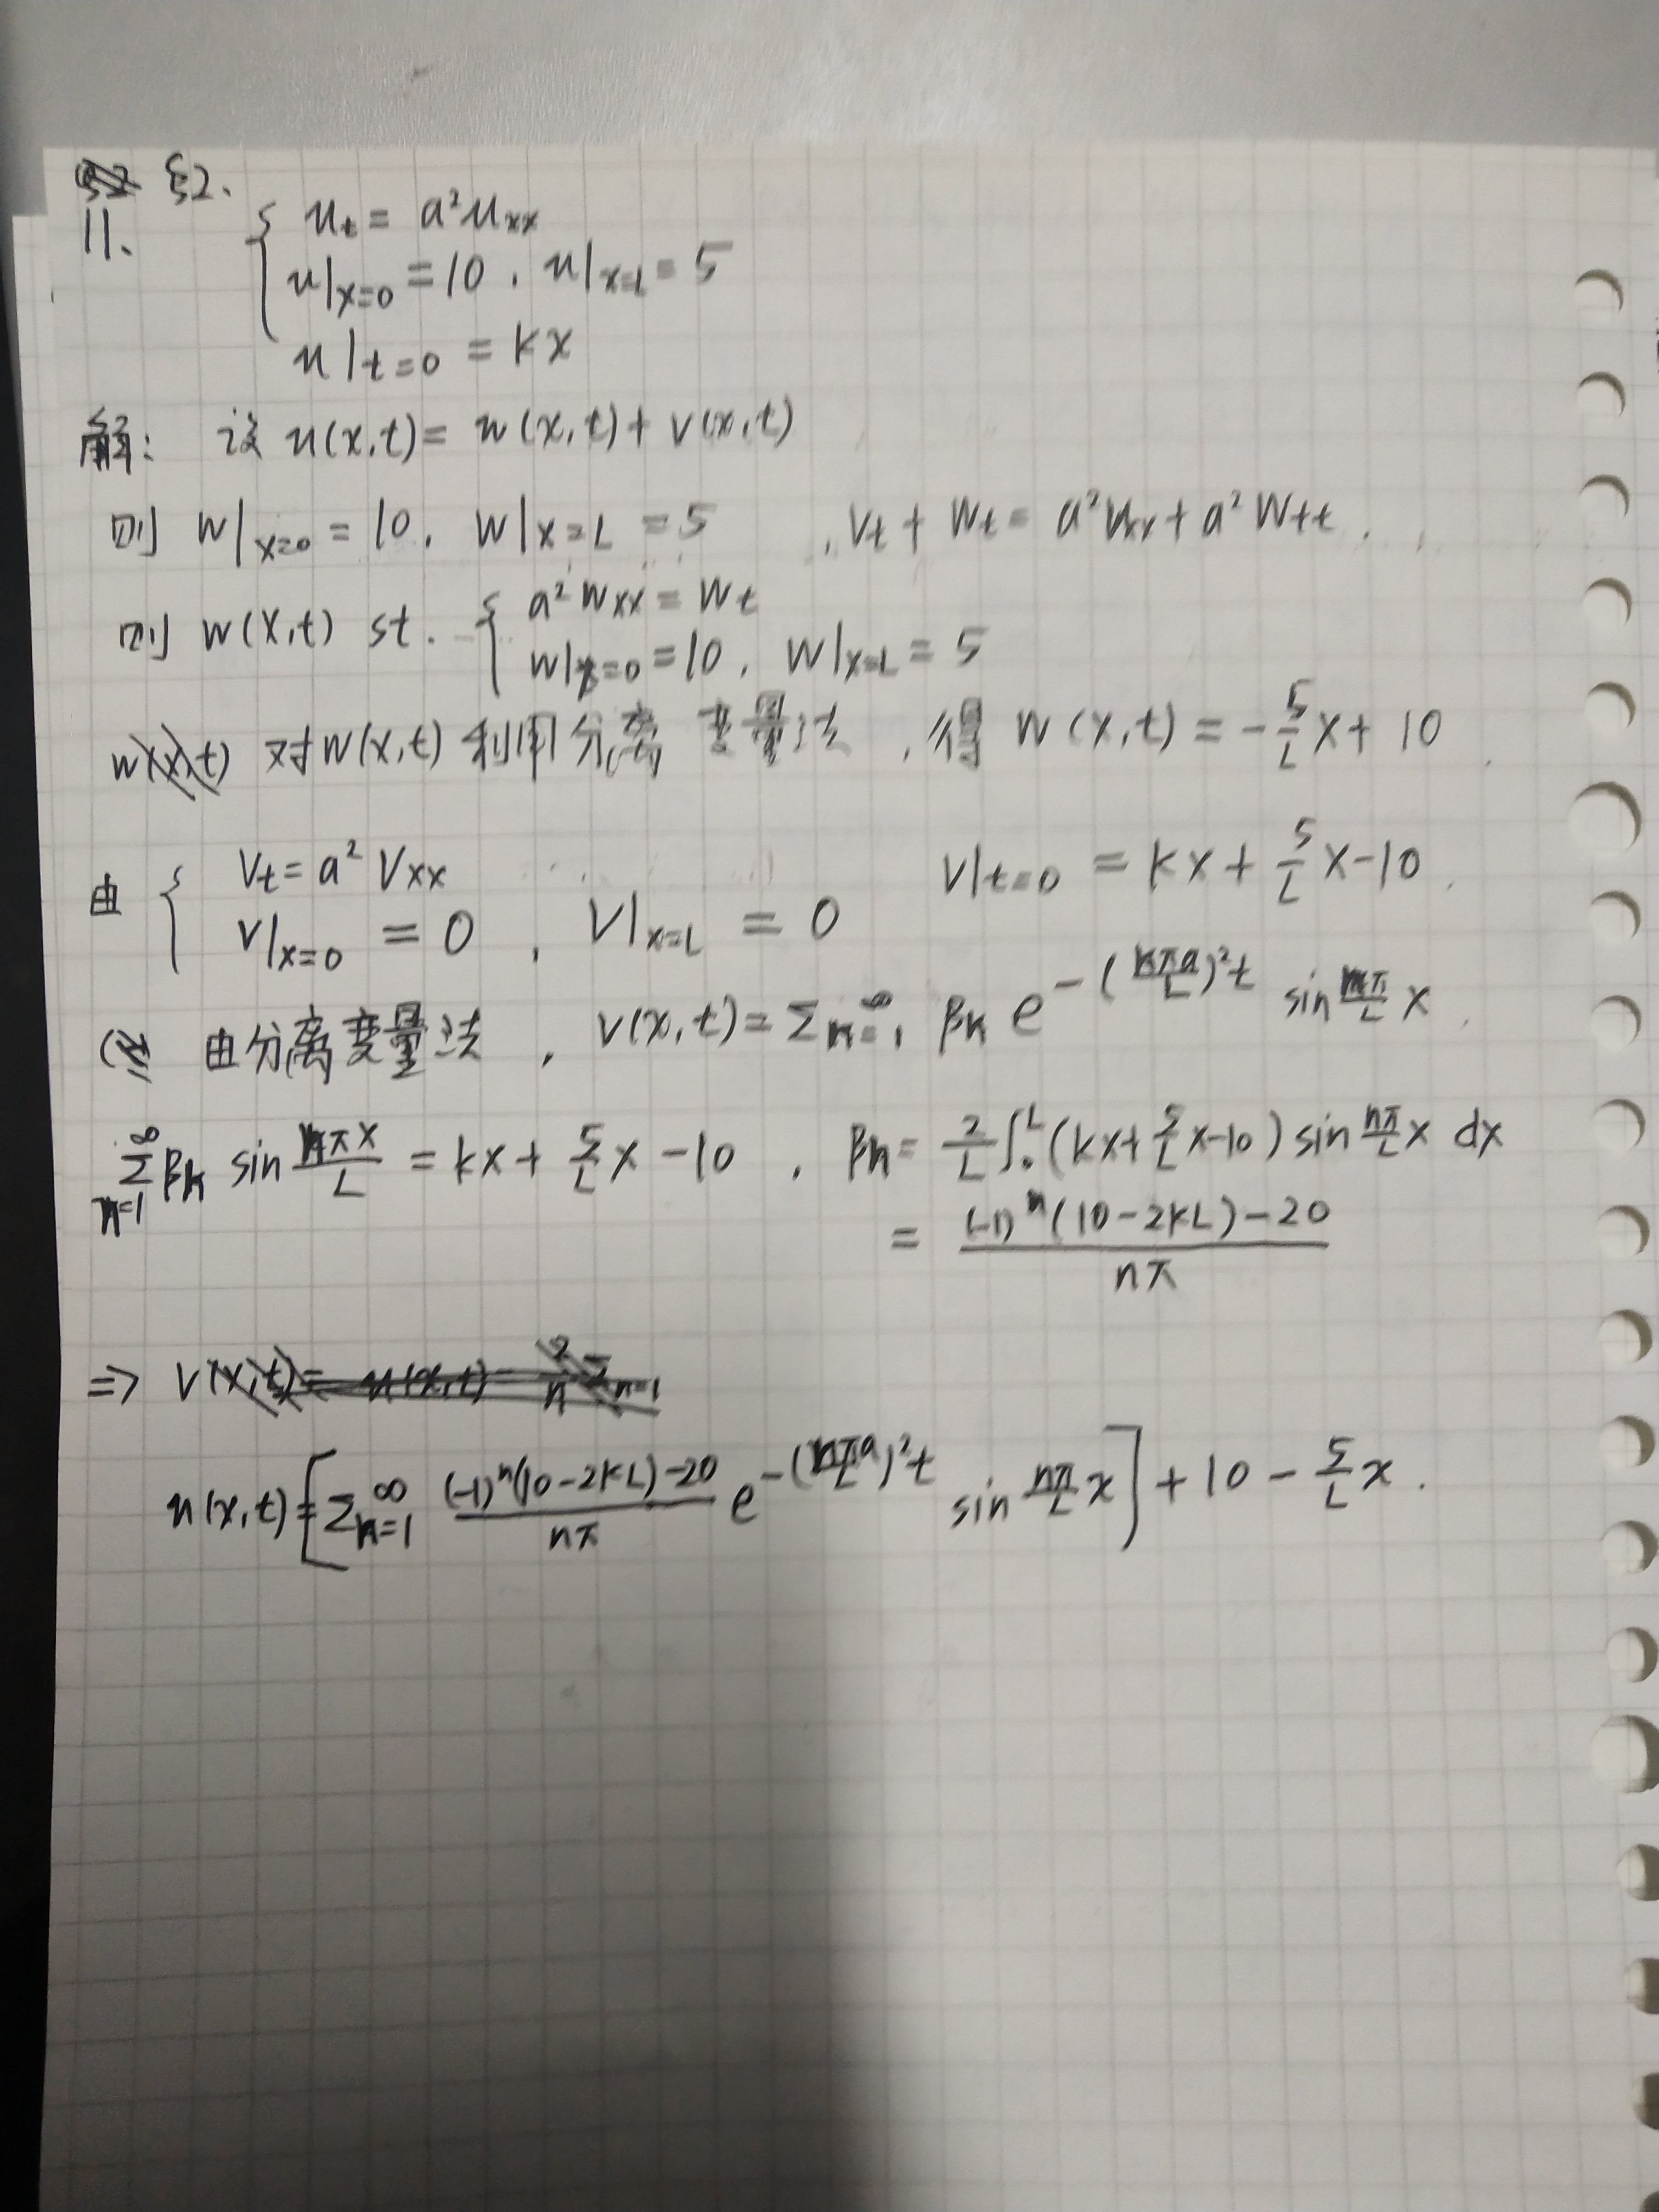 §2.
11. { u_t = a²u_xx
u|x=0 = 10 , u|x=L = 5
u|t=0 = kx
解: 设 u(x,t) = w(x,t) + v(x,t)
则 w|x=0 = 10, w|x=L = 5 , v_t + w_t = a²v_xx + a²w_tt .
则 w(x,t) st. { a²w_xx = w_t
w|x=0 = 10 , w|x=L = 5
对 w(x,t) 利用分离变量法 , 得 w(x,t) = -5/L x + 10 .
由 { v_t = a² v_xx
v|x=0 = 0 , v|x=L = 0 v|t=0 = kx + 5/L x - 10 .
由分离变量法 , v(x,t) = Σ_{n=1}^∞ β_n e^{-(nπa/L)²t} sin nπ/L x .
Σ_{n=1}^∞ β_n sin nπx/L = kx + 5/L x - 10 , β_n = 2/L ∫_0^L (kx + 5/L x - 10) sin nπ/L x dx
= ((-1)^n (10 - 2kL) - 20)/(nπ)
⇒
u(x,t) = [Σ_{n=1}^∞ ((-1)^n (10 - 2kL) - 20)/(nπ) e^{-(nπa/L)²t} sin nπ/L x] + 10 - 5/L x .